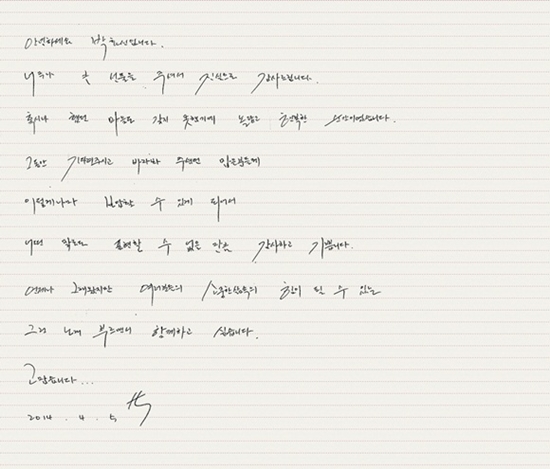 안녕하세요 박효신입니다.
너무나 큰 선물을 주셔서 진심으로 감사드립니다.
혹시나 했던 마음도 갖지 못했기에 놀랍고 행복한 날이었습니다.
그동안 기다려주시고 바라봐 주셨던 많은분들께
이렇게나마 보답할 수 있게 되어
어떤 말로도 표현할 수 없을 만큼 감사하고 기쁩니다.
언제나 그래왔지만 여러분들의 소중한 삶속의 힘이 될 수 있는
그런 노래 부르면서 함께하고 싶습니다.
고맙습니다...
2014 . 4 . 5